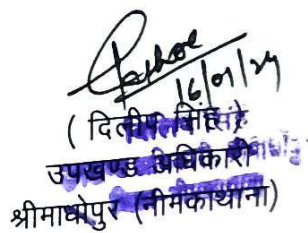 16/01/24
( दिलीप सिंह )
उपखण्ड अधिकारी
श्रीमाधोपुर (नीमकाथाना)